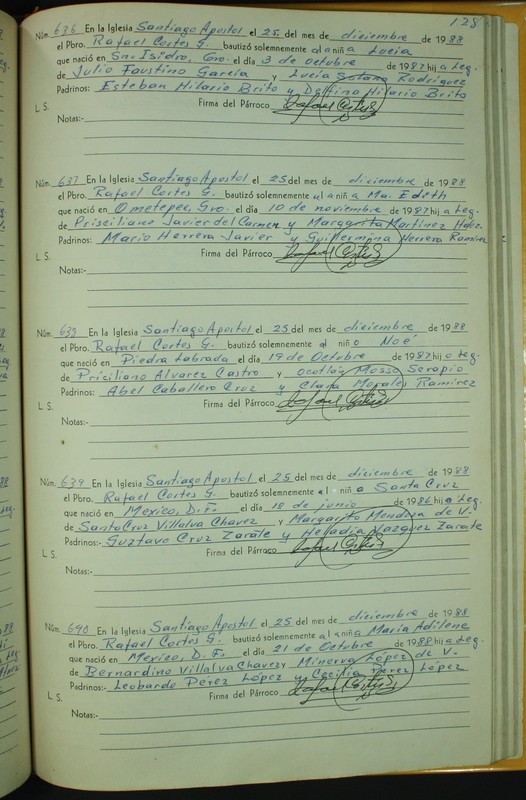 128
Núm. 636 En la Iglesia Santiago Apostol el 25 del mes de diciembre de 1988
el Pbro. Rafael Cortes G. bautizó solemnemente al a niñ a Lucia
que nació en Sn. Isidro, Gro. el día 3 de Octubre de 1987 hij a Leg.
de Julio Faustino García y Lucia Solano Rodríguez
Padrinos: Esteban Hilario Brito y Delfina Hilario Brito
L. S. Firma del Párroco Rafael Cortes G
Notas:-
Núm. 637 En la Iglesia Santiago Apostol el 25 del mes de diciembre de 1988
el Pbro. Rafael Cortes G. bautizó solemnemente al a niñ a Ma. Edith
que nació en Ometepec, Gro. el día 10 de noviembre de 1987 hij a Leg.
de Prisciliano Javier del Carmen y Margarita Martinez Hdez.
Padrinos: Mario Herrera Javier y Guillermina Herrera Ramirez
L. S. Firma del Párroco Rafael Cortes G
Notas:-
Núm. 638 En la Iglesia Santiago Apostol el 25 del mes de diciembre de 1988
el Pbro. Rafael Cortes G. bautizó solemnemente al niñ o Noé
que nació en Piedra Labrada el día 19 de Octubre de 1987 hij o Leg.
de Prisiliano Alvarez Castro y Ocotlán Mosso Serapio
Padrinos: Abel Caballero Cruz y Clara Morales Ramirez
L. S. Firma del Párroco Rafael Cortes G
Notas:-
Núm. 639 En la Iglesia Santiago Apostol el 25 del mes de diciembre de 1988
el Pbro. Rafael Cortes G. bautizó solemnemente al niñ a Santa Cruz
que nació en Mexico, D. F. el día 18 de junio de 1986 hij a Leg.
de Santa Cruz Villalva Chavez y Margarito Mendoza de V.
Padrinos:- Gustavo Cruz Zarate y Heladia Vazquez Zarate
L. S. Firma del Párroco Rafael Cortes G
Notas:-
Núm. 640 En la Iglesia Santiago Apostol el 25 del mes de diciembre de 1988
el Pbro. Rafael Cortes G. bautizó solemnemente al a niñ a María Adilene
que nació en Mexico, D. F. el día 21 de Octubre de 1988 hij a Leg.
de Bernardino Villalva Chavez y Minerva López de V.
Padrinos:- Leobardo Perez López y Cecilia Perez López
L. S. Firma del Párroco Rafael Cortes G
Notas:-